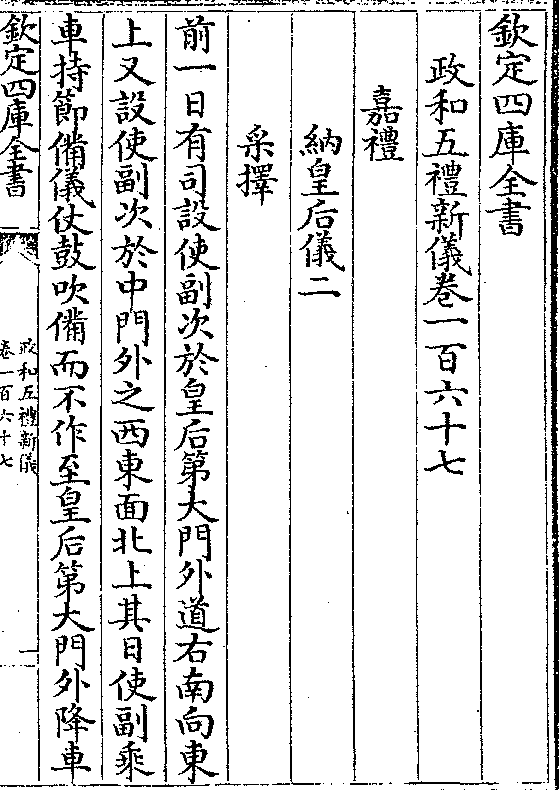 欽定四庫全書
政和五禮新儀卷一百六十七
嘉禮
納皇后儀二
采擇
前一日有司設使副次於皇后第大門外道右南向東
上又設使副次於中門外之西東面北上其日使副乘
車持節備儀仗鼓吹備而不作至皇后第大門外降車
欽定四庫全書
政和五禮新儀
卷一百六十七
一